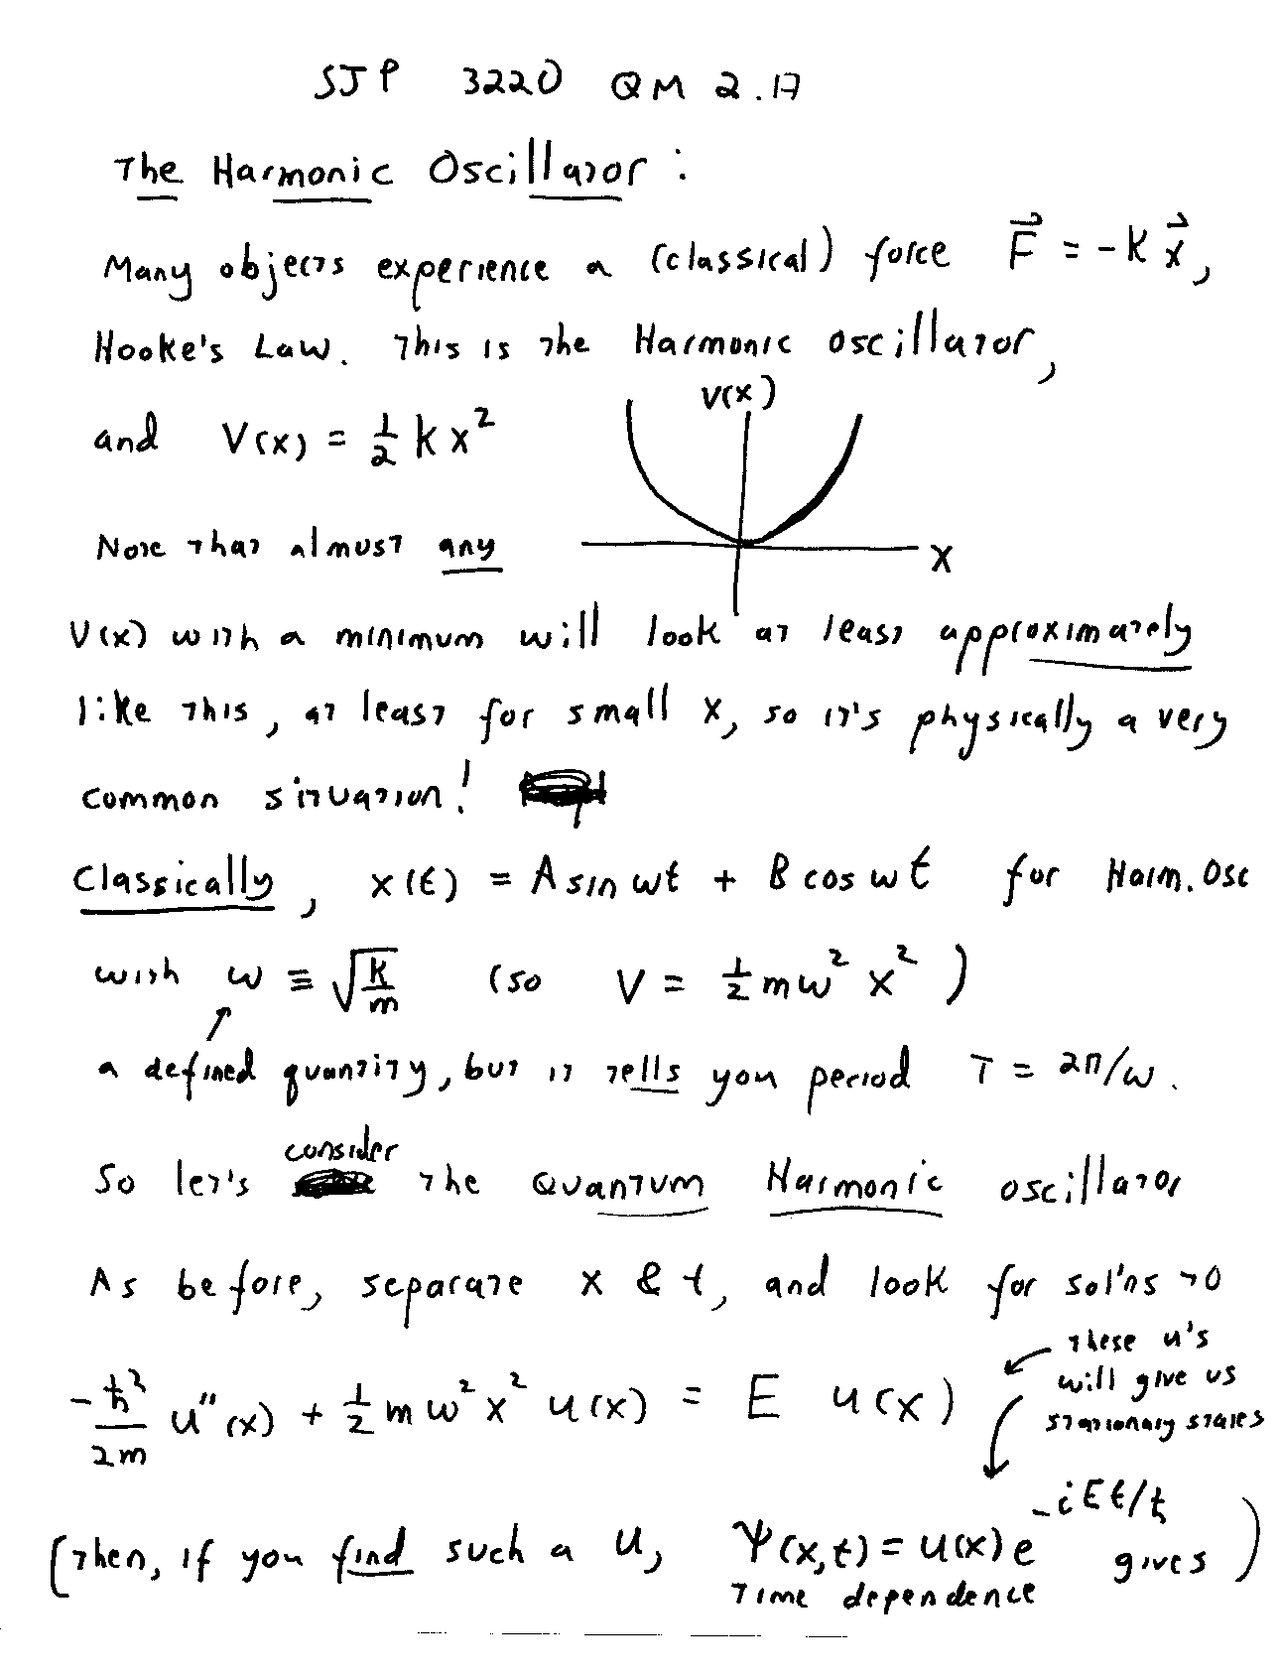 SJP 3220 QM 2.17
The Harmonic Oscillator:
Many objects experience a (classical) force F⃗ = -k x⃗,
Hooke's Law. This is the Harmonic oscillator,
V(x)
and V(x) = ½ k x²
Note that almost any
X
V(x) with a minimum will look at least approximately
like this, at least for small x, so it's physically a very
common situation!
Classically, x(t) = A sin ωt + B cos ωt for Harm. Osc
with ω ≡ √(k/m) (so V = ½ m ω² x²)
a defined quantity, but it tells you period T = 2π/ω.
consider
So let's the Quantum Harmonic oscillator
As before, separate x & t, and look for sol'ns to
these u's
will give us
stationary states
-ħ²/2m u''(x) + ½ m ω² x² u(x) = E u(x)
(Then, if you find such a u, Ψ(x,t) = u(x) e^(-iEt/ħ) gives)
Time dependence